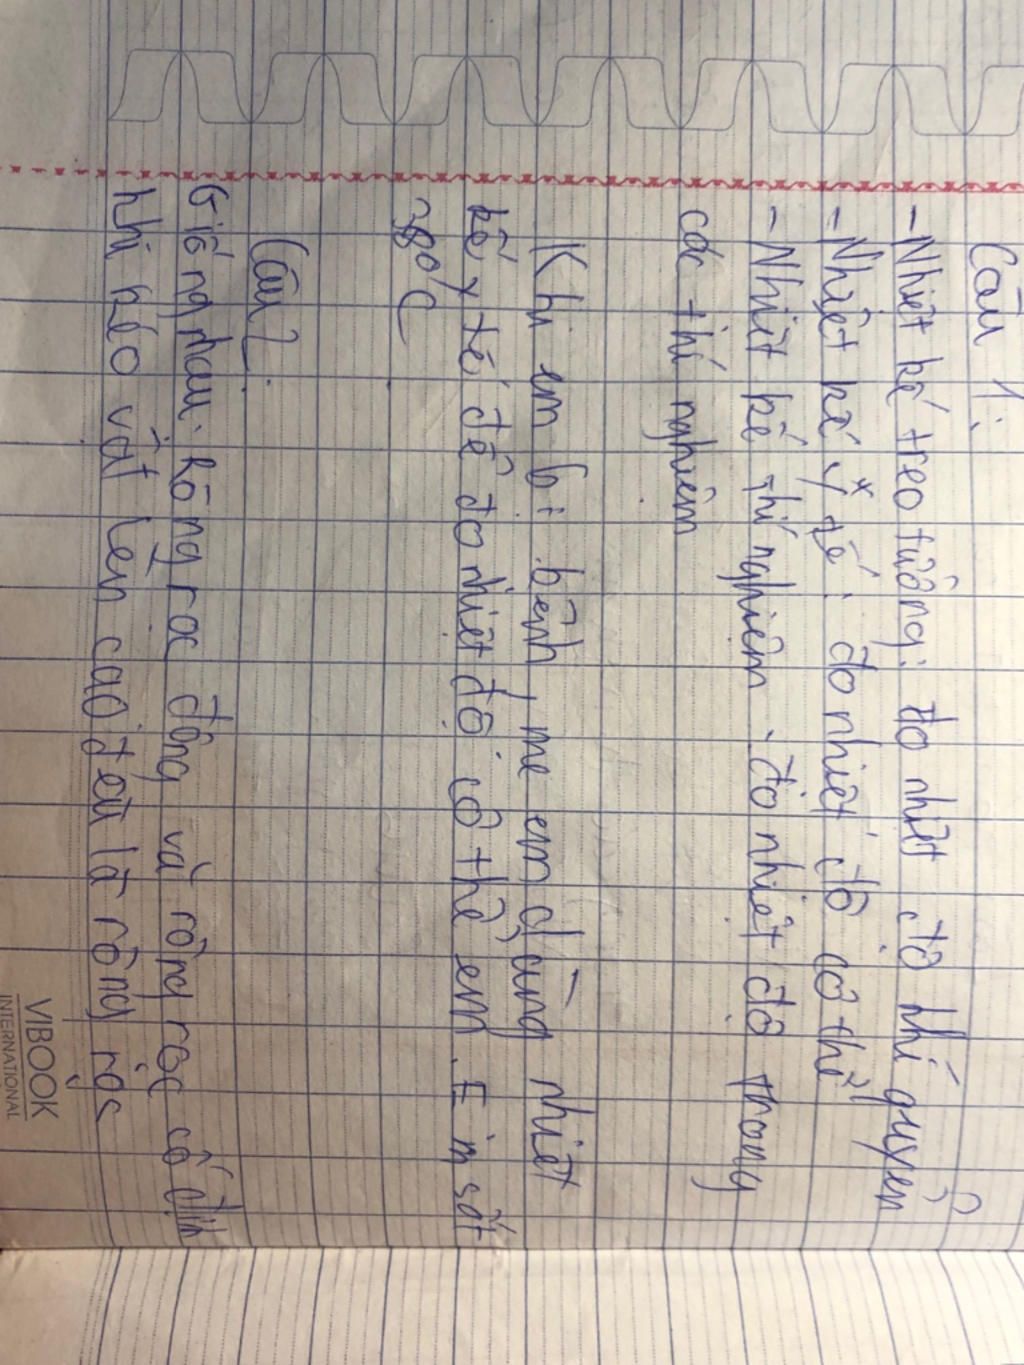 Câu 1:
- Nhiệt kế treo tường: đo nhiệt độ khí quyển
- Nhiệt kế y tế: đo nhiệt độ cơ thể
- Nhiệt kế thí nghiệm: đo nhiệt độ trong
các thí nghiệm
Khi em bị bệnh, mẹ em dùng nhiệt
kế y tế để đo nhiệt độ cơ thể em. Em sốt
38°C
Câu 2:
Giống nhau: Ròng rọc động và ròng rọc cố định
khi kéo vật lên cao đều là ròng rọc
VIBOOK
INTERNATIONAL